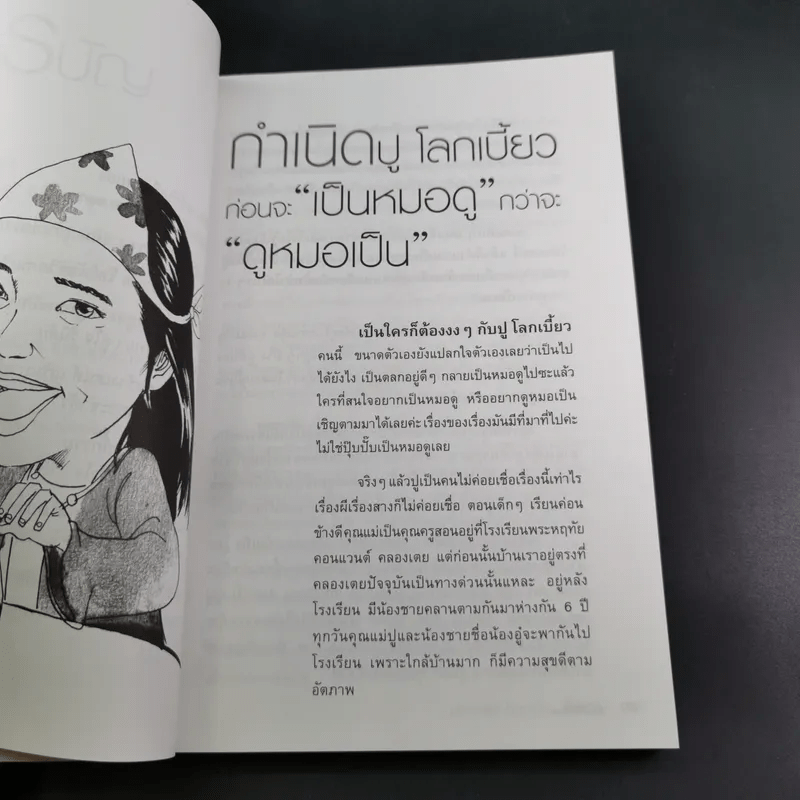 สารบัญ
กำเนิดปู โลกเบี้ยว
ก่อนจะ “เป็นหมอดู” กว่าจะ
“ดูหมอเป็น”
เป็นใครก็ต้องงง ๆ กับปู โลกเบี้ยว
คนนี้ ขนาดตัวเองยังแปลกใจตัวเองเลยว่าเป็นไป
ได้ยังไง เป็นตลกอยู่ดีๆ กลายเป็นหมอดูไปซะแล้ว
ใครที่สนใจอยากเป็นหมอดู หรืออยากดูหมอเป็น
เชิญตามมาได้เลยค่ะ เรื่องของเรื่องมันมีที่มาที่ไปค่ะ
ไม่ใช่ปุ๊บปั๊บเป็นหมอดูเลย
จริงๆ แล้วปูเป็นคนไม่ค่อยเชื่อเรื่องนี้เท่าไร
เรื่องผีเรื่องสางก็ไม่ค่อยเชื่อ ตอนเด็กๆ เรียนค่อน
ข้างดีคุณแม่เป็นคุณครูสอนอยู่ที่โรงเรียนพระหฤทัย
คอนแวนต์ คลองเตย แต่ก่อนนั้นบ้านเราอยู่ตรงที่
คลองเตยปัจจุบันเป็นทางด่วนนั้นแหละ อยู่หลัง
โรงเรียน มีน้องชายคลานตามกันมาห่างกัน 6 ปี
ทุกวันคุณแม่ปูและน้องชายชื่อน้องอู๋จะพากันไป
โรงเรียน เพราะใกล้บ้านมาก ก็มีความสุขดีตาม
อัตภาพ